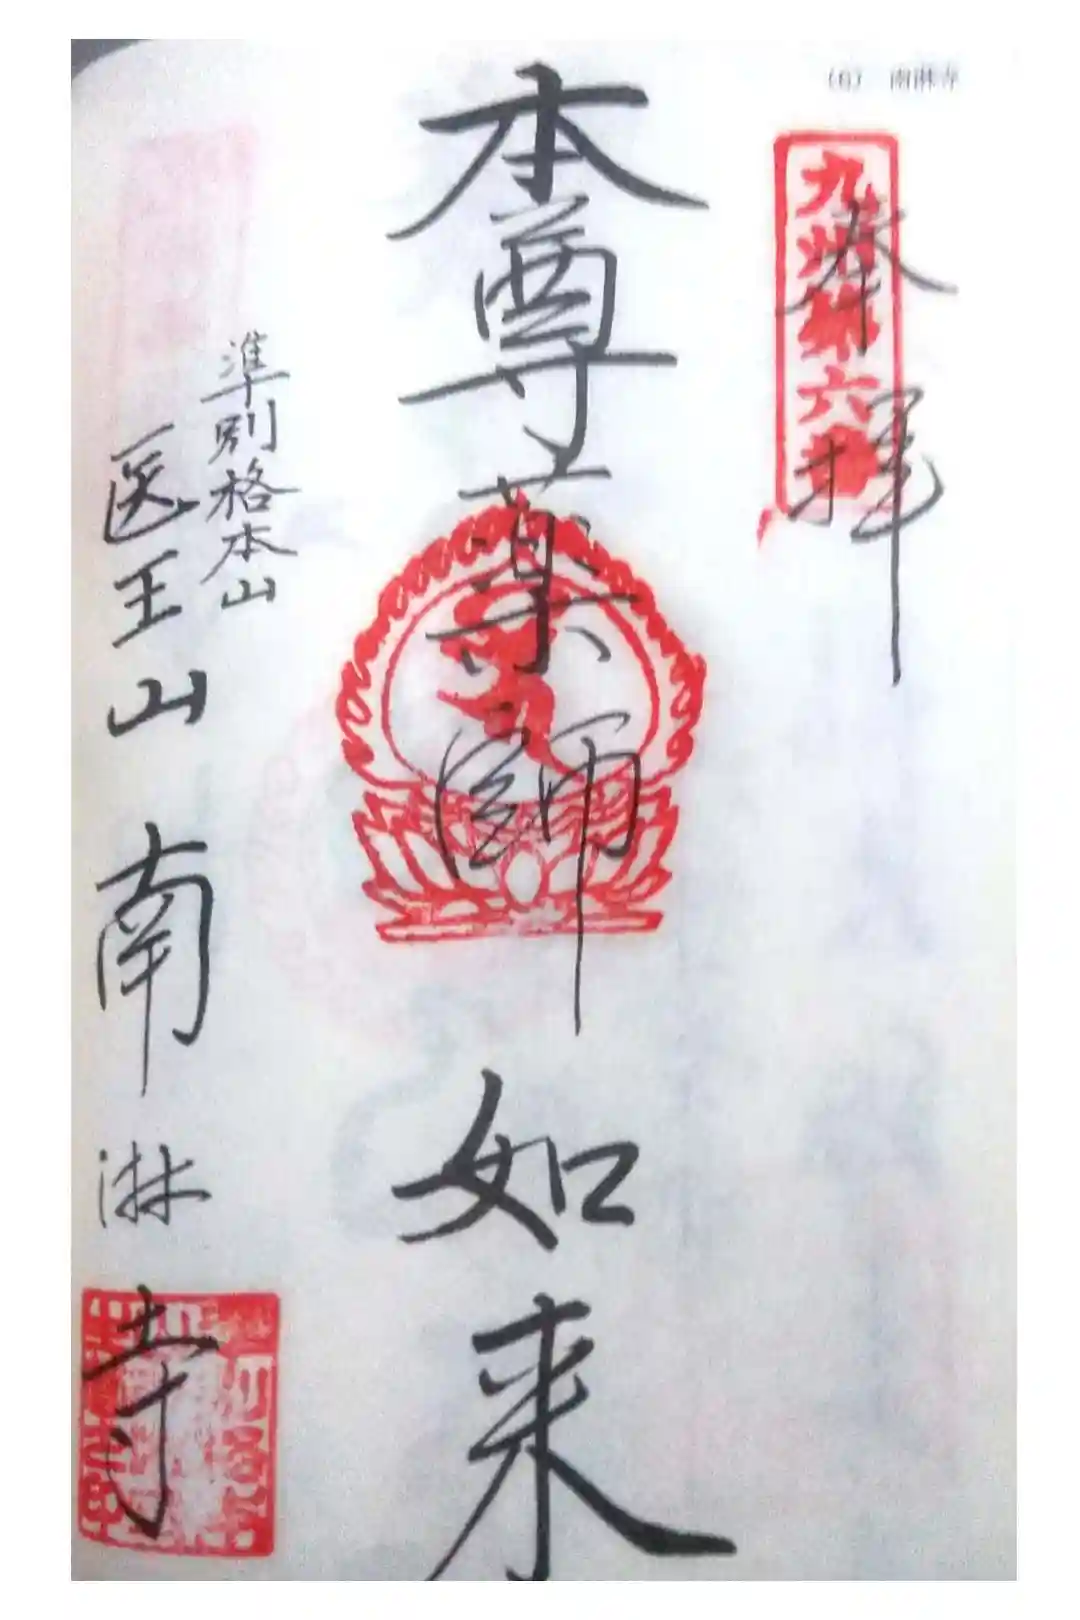 (6) 南淋寺
九州第六番
奉拝
本尊薬師如来
準別格本山
医王山 南淋寺